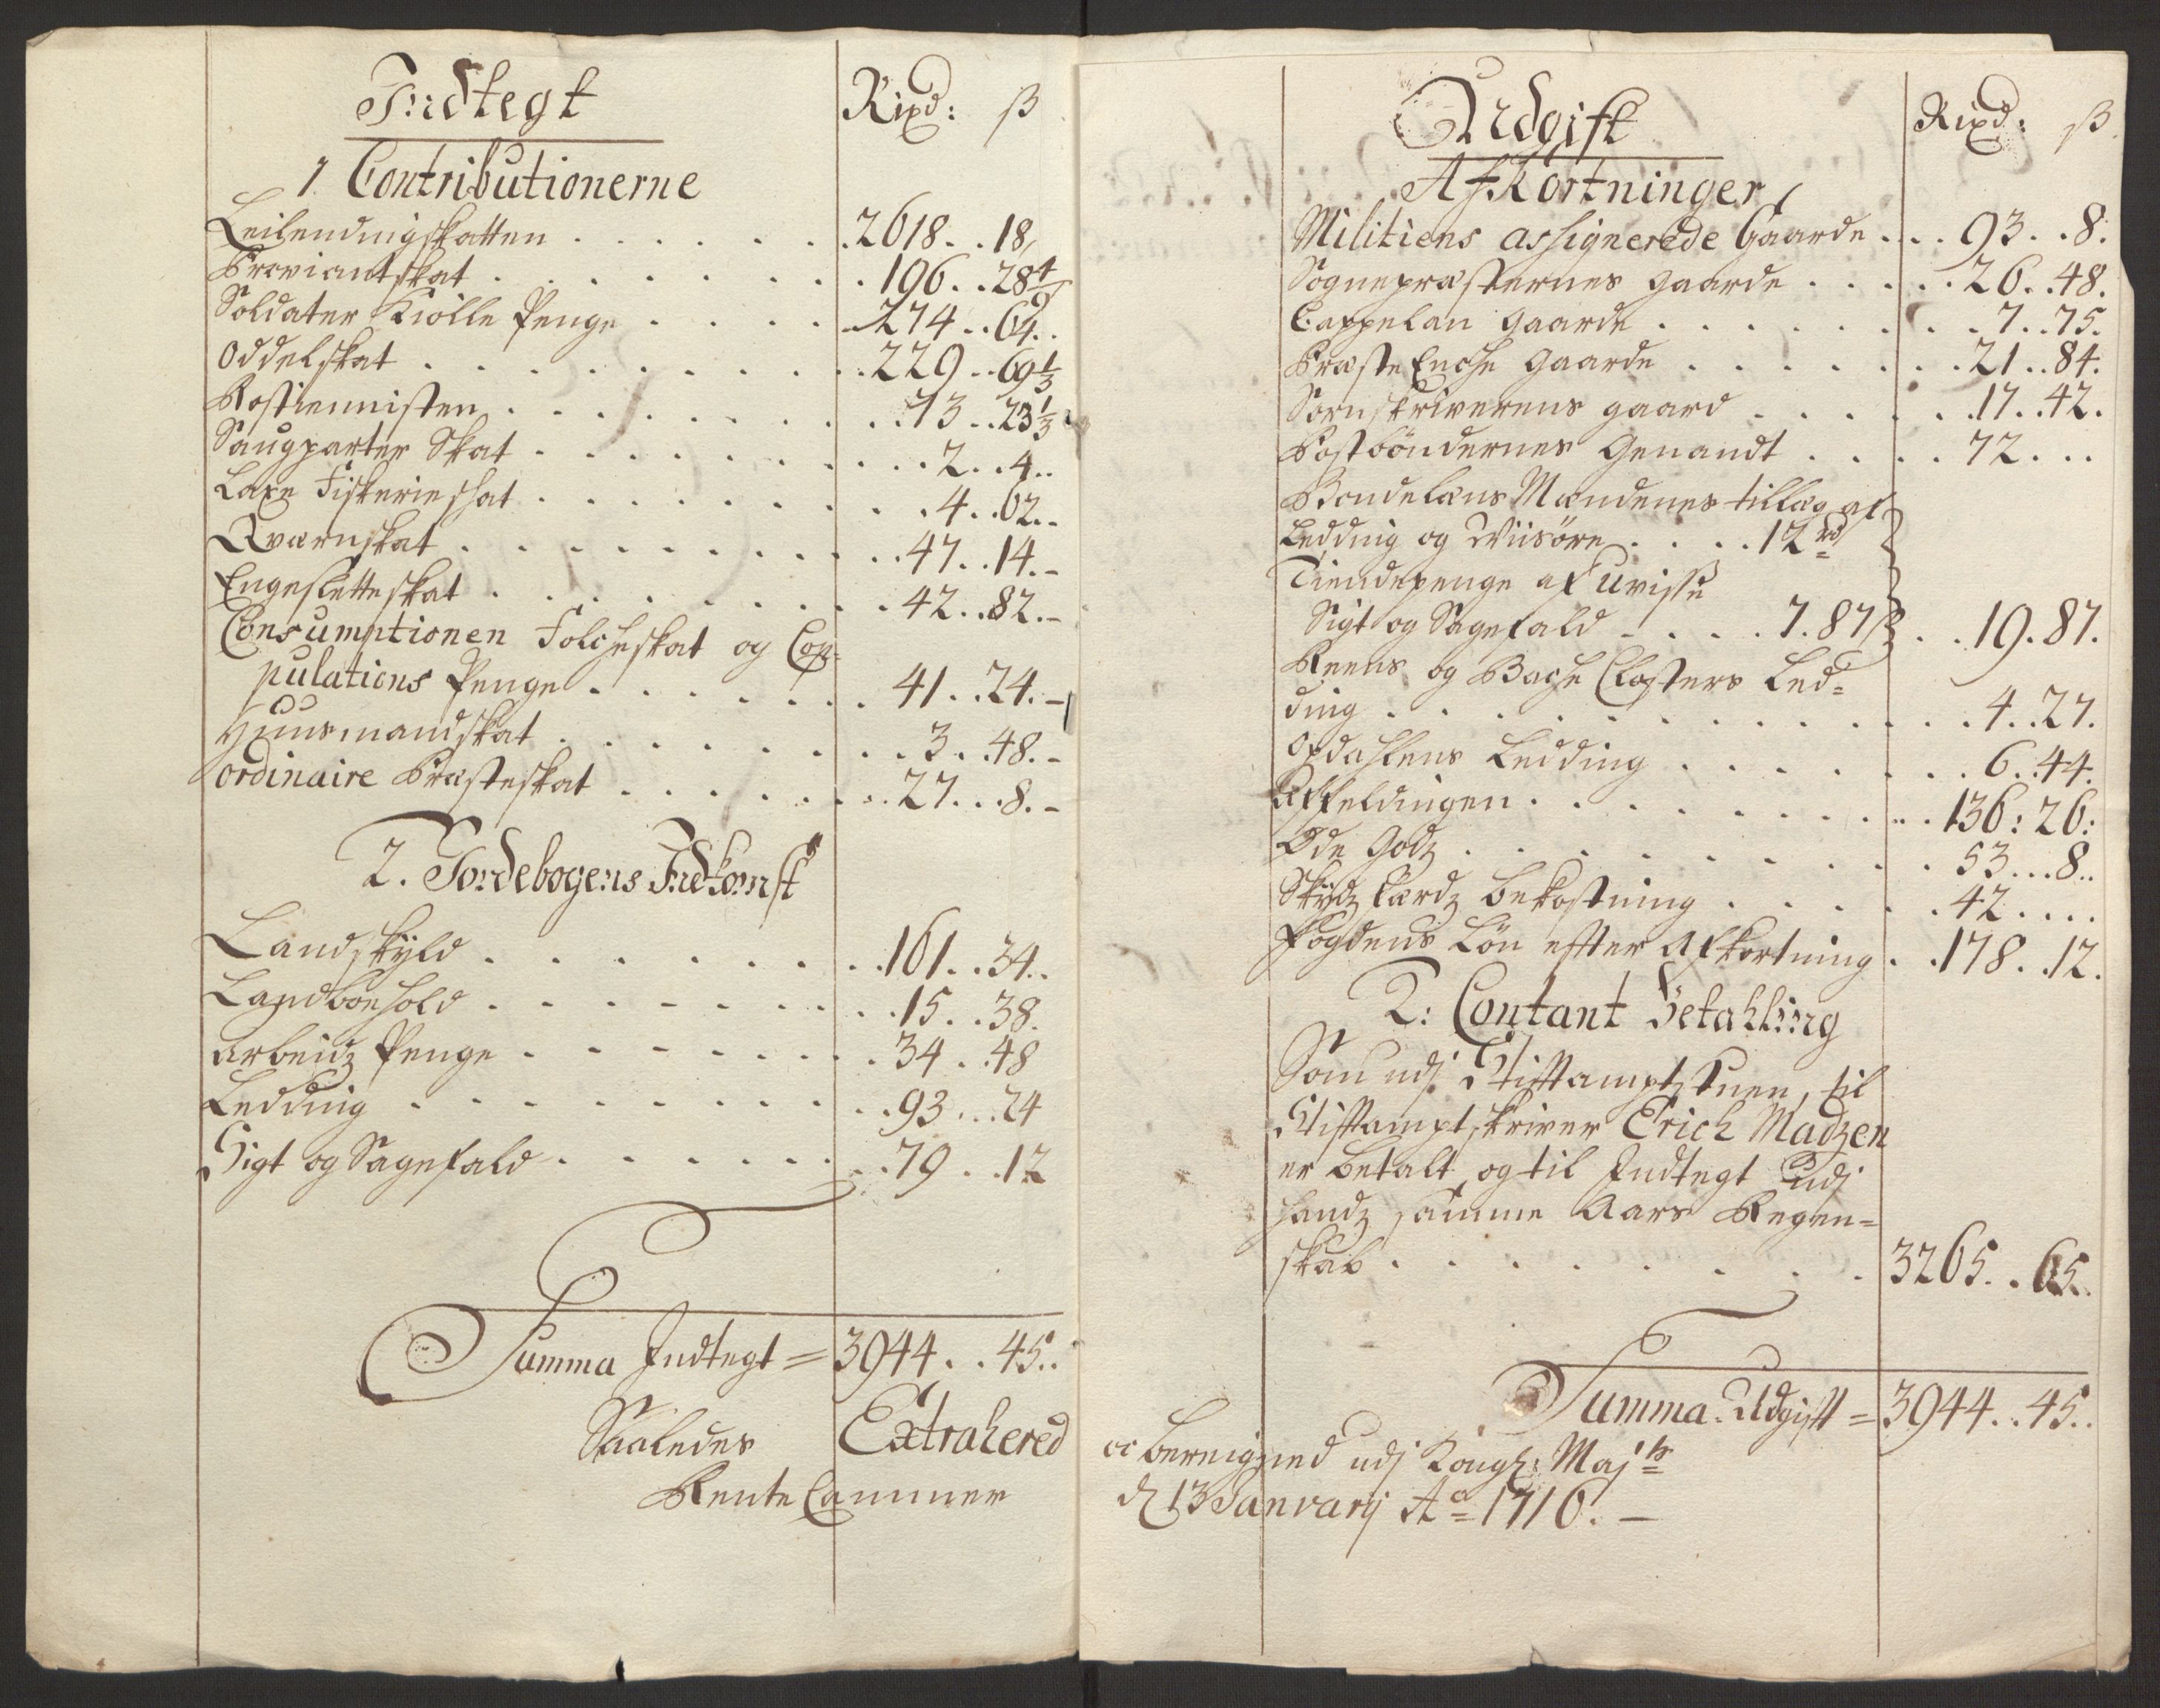 Indtegt
Rixd: ß
1 Contributionerne
Leilendingskatten . . . . . . 2618 . . 18
Proviantskat . . . . . . . 106 . . 28 4/5
Soldater Kiolle Penge . . . . 274 . . 64 . .
Oddelskat . . . . . . . . . 229 . . 69 1/3
Rostiennisten . . . . . . . 73 . . 23 1/3
Saugparter Skat . . . . . . . . 2 . . 4 . .
Laxe Fiskerie skat . . . . . . . 4 . . 62 . .
Qværnskat . . . . . . . . . 47 . . 14 . -
Engesletteskat . . . . . . . . 42 . . 82 . -
Consumptionen Folcheskat og Cop-
pulations Penge . . . . . . 41 . . 24 . -
Huusmandskat . . . . . . . . 3 . . 48 . -
ordinaire Præsteskat . . . . . . 27 . . . 8 . -
2. Jordebogens Indkomst
Landskyld . . . . . . . . 161 . . 34 . .
Landboehold . . . . . . . . 15 . . 38 .
Arbeidz Penge . . . . . . . . 34 . . 48
Ledding . . . . . . . . . . 93 . . . 24
Sigt og Sagefald . . . . . . . 79 . . 12
Summa Indtegt = 3944 . . 45 . .
Saaledes Extrahered
Rente Cammer
Udgift
Rixd: ß
Afkortninger
Militiens assignerede Gaarde . . . 93 . . 8 .
Sognepræsternes gaarde . . . . . 26 . . 48 .
Cappelan gaarde . . . . . . . . 7 . . 75 .
Præste Enche gaarde . . . . . . . 21 . . 84 .
Sornskriverens gaard . . . . . . 17 . . 42 .
Postbøndernes Genandt . . . . . 72 . . .
Bondelens Mændenes tillæg af
Ledding og Wiisøre . . . . 12 rd
Tiendepenge af uvisse
Sigt og Sagefald - . . . 7 . 87 ß . . 19 . 87 .
Reens og Bache Closters Led=
ding . . . . . . . . . . . . . 4 . . 27 .
Opdahlens Ledding . . . . . . . . 6 . . 44 .
Affeldingen . . . . . . . . . . 136 : 26 :
Øde Godz . . . . . . . . . . 53 . . . 8 . .
Skydz færdz bekostning . . . . . . 42 . . . .
Fogdens Løn efter Afkortning . . 178 . . 12 .
2: Contant Betahling
Som udj Stiftamptstuen, til
Stiftamptskriver Erich Madzen
er betalt, og til Indtegt udj
handz samme Aars Regen=
skab . . . . . . . . . 3265 . . 65 . .
Summa Udgift = 3944 . . 45 . .
oc bereigned udj Kongl: Maj ts
d 13 Januarij Ao 1716. -